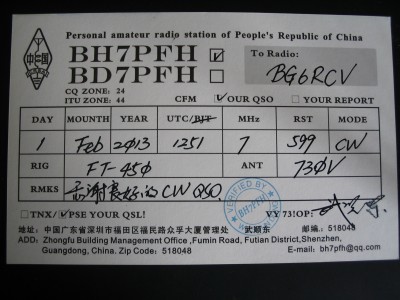 Personal amateur radio station of People's Republic of China
BH7PFH ☑
BD7PFH ☐
To Radio:
BG6RCV
CQ ZONE: 24
ITU ZONE: 44
CFM ☑OUR QSO ☐OUR REPORT
DAY MOUNTH YEAR UTC/BJT MHz RST MODE
1 Feb 2013 1251 7 599 CW
RIG FT-450 ANT 730V
RMKS 感谢良好的CW QSO.
VERIFIED BY
BH7PFH
☐TNX/☑PSE YOUR QSL! VY 73!OP:
地址:中国广东省深圳市福田区福民路众孚大厦管理处 武顺东 邮编.: 518048
ADD: Zhongfu Building Management Office ,Fumin Road, Futian District,Shenzhen,
Guangdong, China. Zip Code: 518048 E-mail: bh7pfh@qq.com